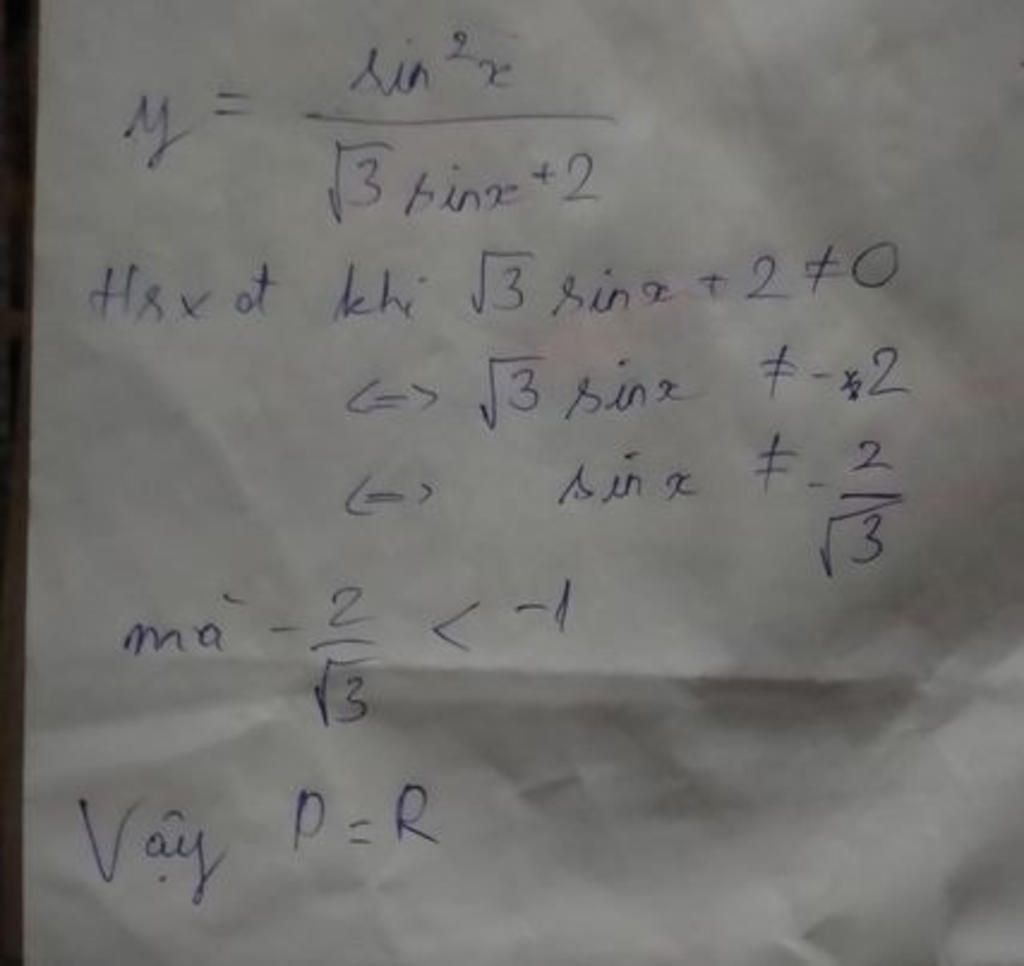 y = sin²x / √3 sinx + 2
Hsxđ khi √3 sinx + 2 ≠ 0
<=> √3 sinx ≠ -2
<=> sinx ≠ -2/√3
mà -2/√3 < -1
Vậy D = R